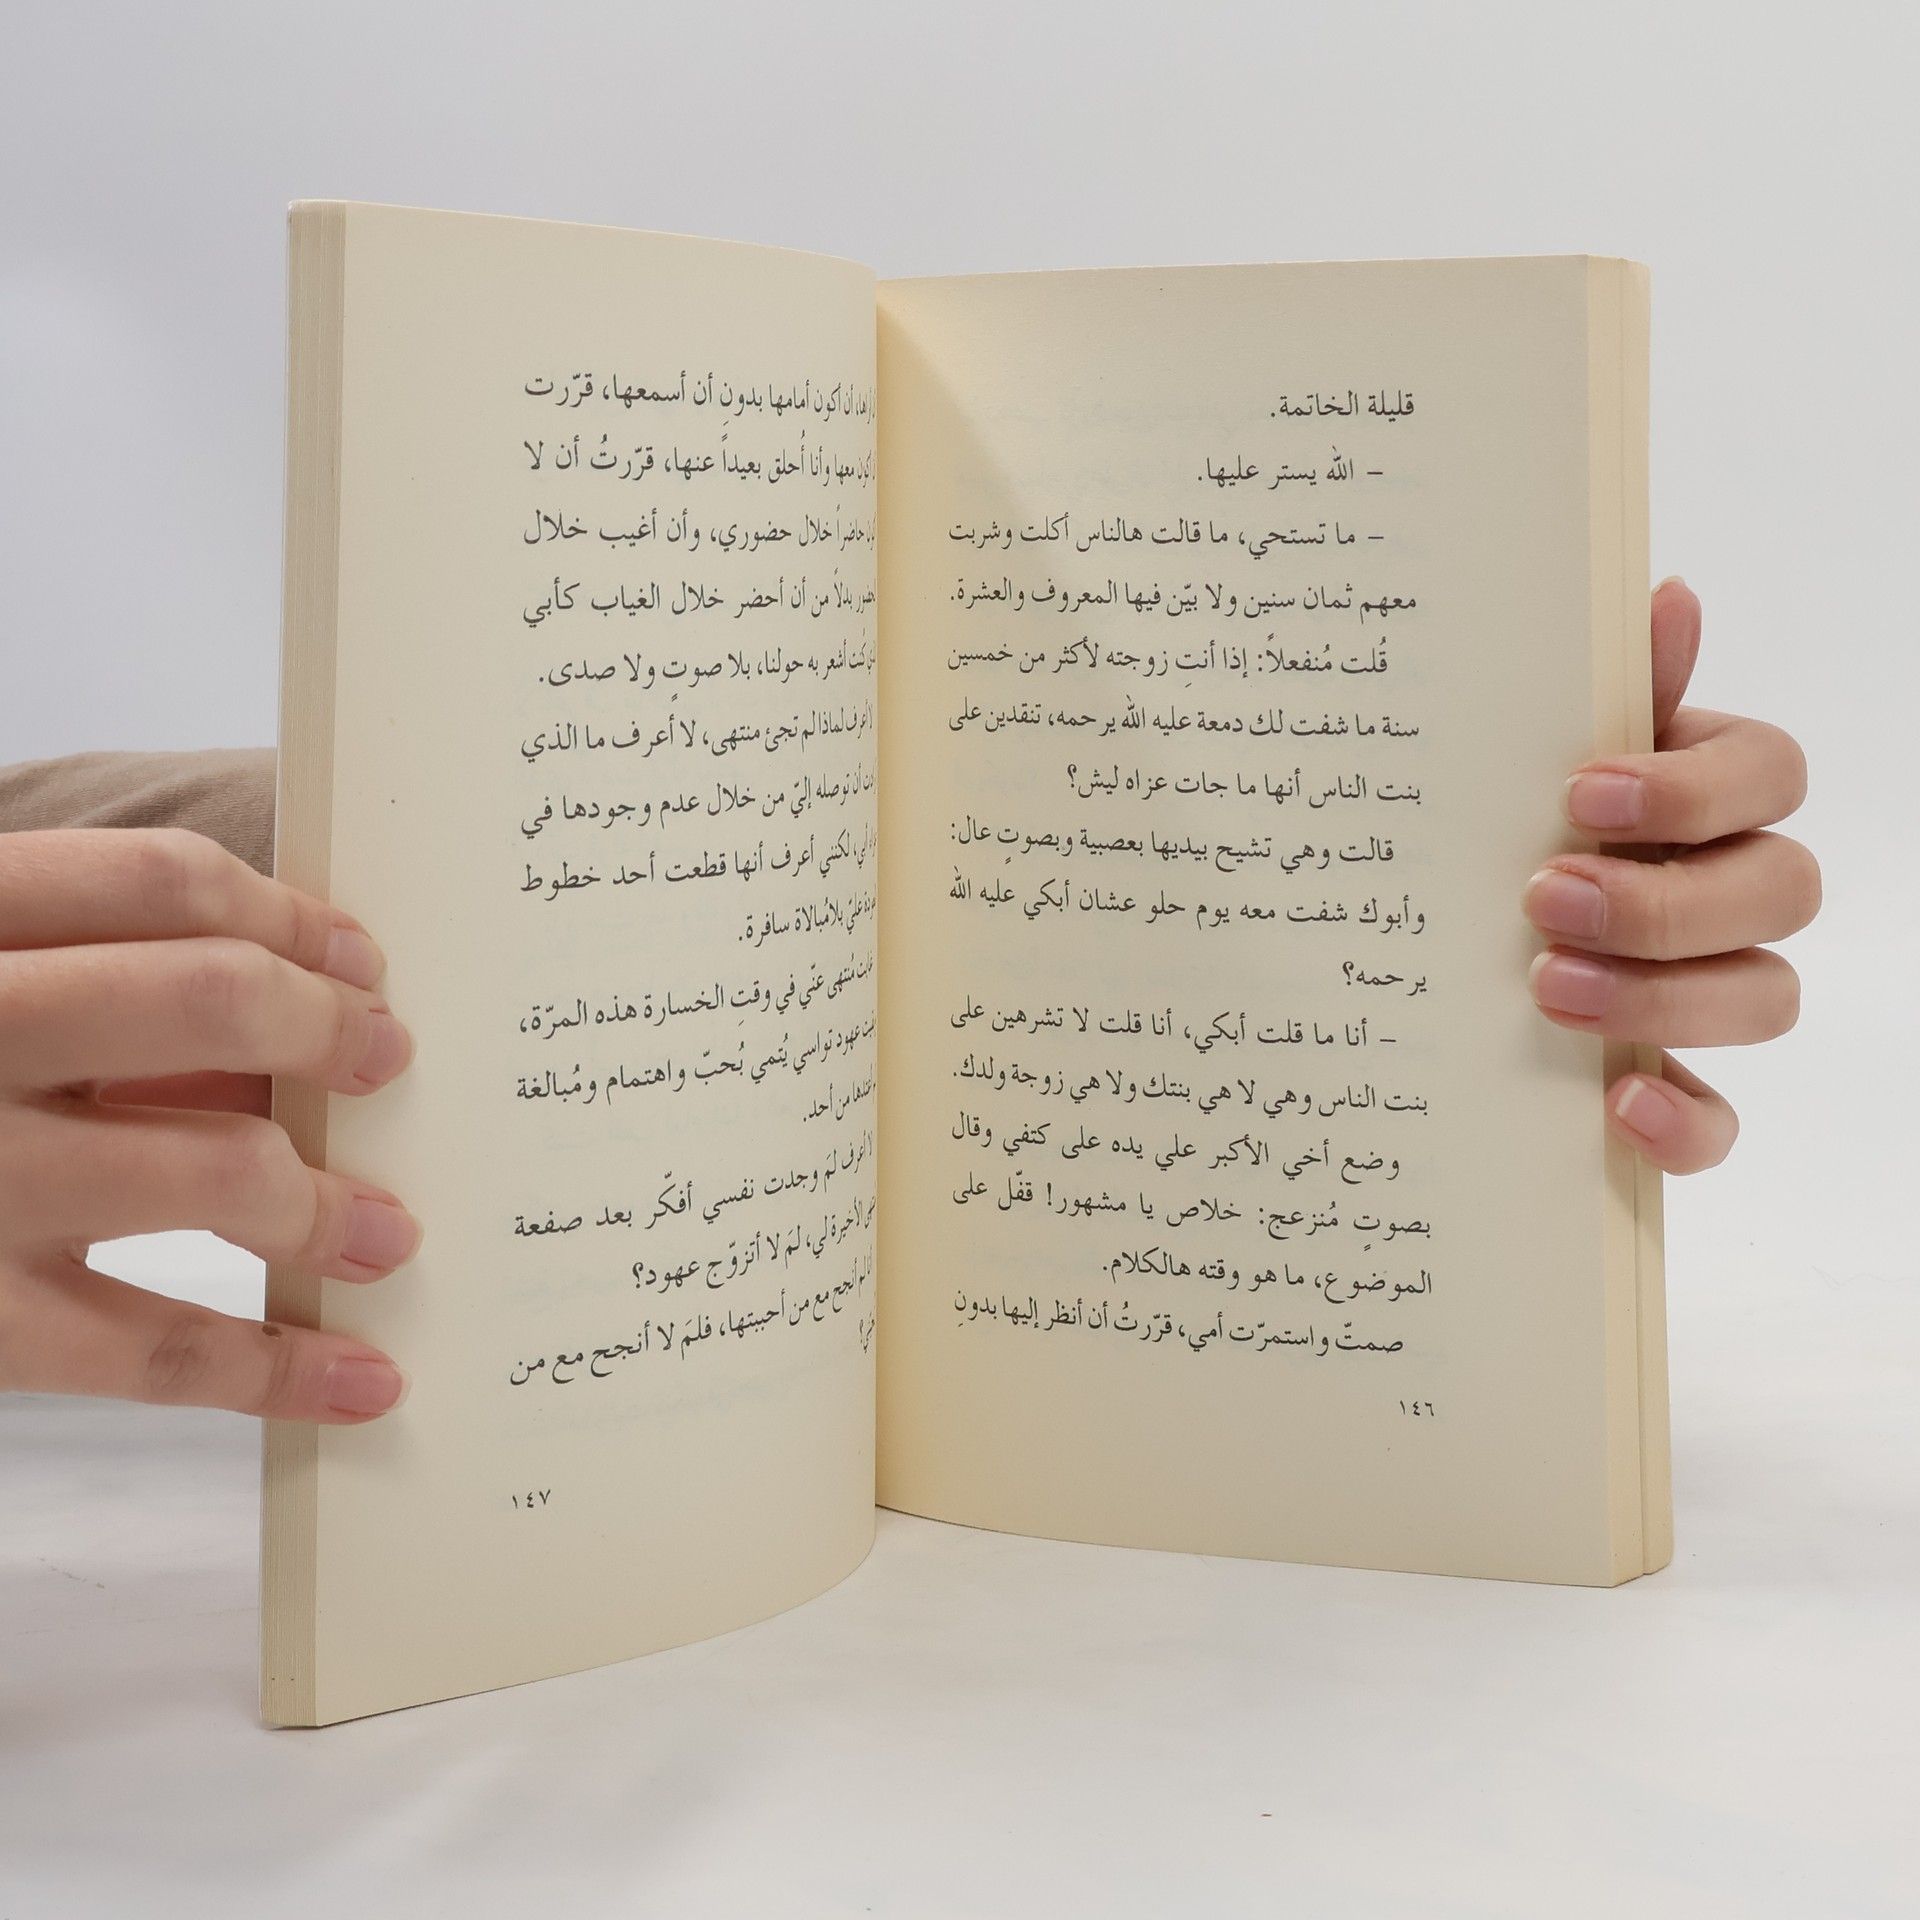 قليلة الخاتمة.
– الله يستر عليها.
– ما تستحي، ما قالت هالناس أكلت وشربت
معهم ثمان سنين ولا بيّن فيها المعروف والعشرة.
قُلت مُنفعلاً: إذا أنتِ زوجته لأكثر من خمسين
سنة ما شفت لك دمعة عليه الله يرحمه، تنقدين على
بنت الناس أنها ما جات عزاه ليش؟
قالت وهي تشيح بيديها بعصبية وبصوتٍ عال:
وأبوك شفت معه يوم حلو عشان أبكي عليه الله
يرحمه؟
– أنا ما قلت أبكي، أنا قلت لا تشرهين على
بنت الناس وهي لا هي بنتك ولا هي زوجة ولدك.
وضع أخي الأكبر علي يده على كتفي وقال
بصوتٍ مُنزعج: خلاص يا مشهور! قفّل على
الموضوع، ما هو وقته هالكلام.
صمتّ واستمرّت أمي، قرّرتُ أن أنظر إليها بدونِ
١٤٦
أن أكون أمامها بدونِ أن أسمعها، قرّرت
معها وأنا أُحلق بعيداً عنها، قرّرتُ أن لا
حاضراً خلال حضوري، وأن أغيب خلال
بدلاً من أن أحضر خلال الغياب كأبي
كُنت أشعر به حولنا، بلا صوتٍ ولا صدى.
لا أعرف لماذا لم تجئ منتهى، لا أعرف ما الذي
أن توصله إليّ من خلال عدم وجودها في
أبي، لكنني أعرف أنها قطعت أحد خطوط
عليّ بلامُبالاة سافرة.
مُنتهى عنّي في وقتِ الخسارة هذه المرّة،
عهود تواسي يُتمي بُحبّ واهتمام ومُبالغة
من أحد.
لا أعرف لمَ وجدت نفسي أفكّر بعد صفعة
الأخيرة لي، لمَ لا أتزوّج عهود؟
لم أنجح مع من أحببتها، فلمَ لا أنجح مع من
١٤٧